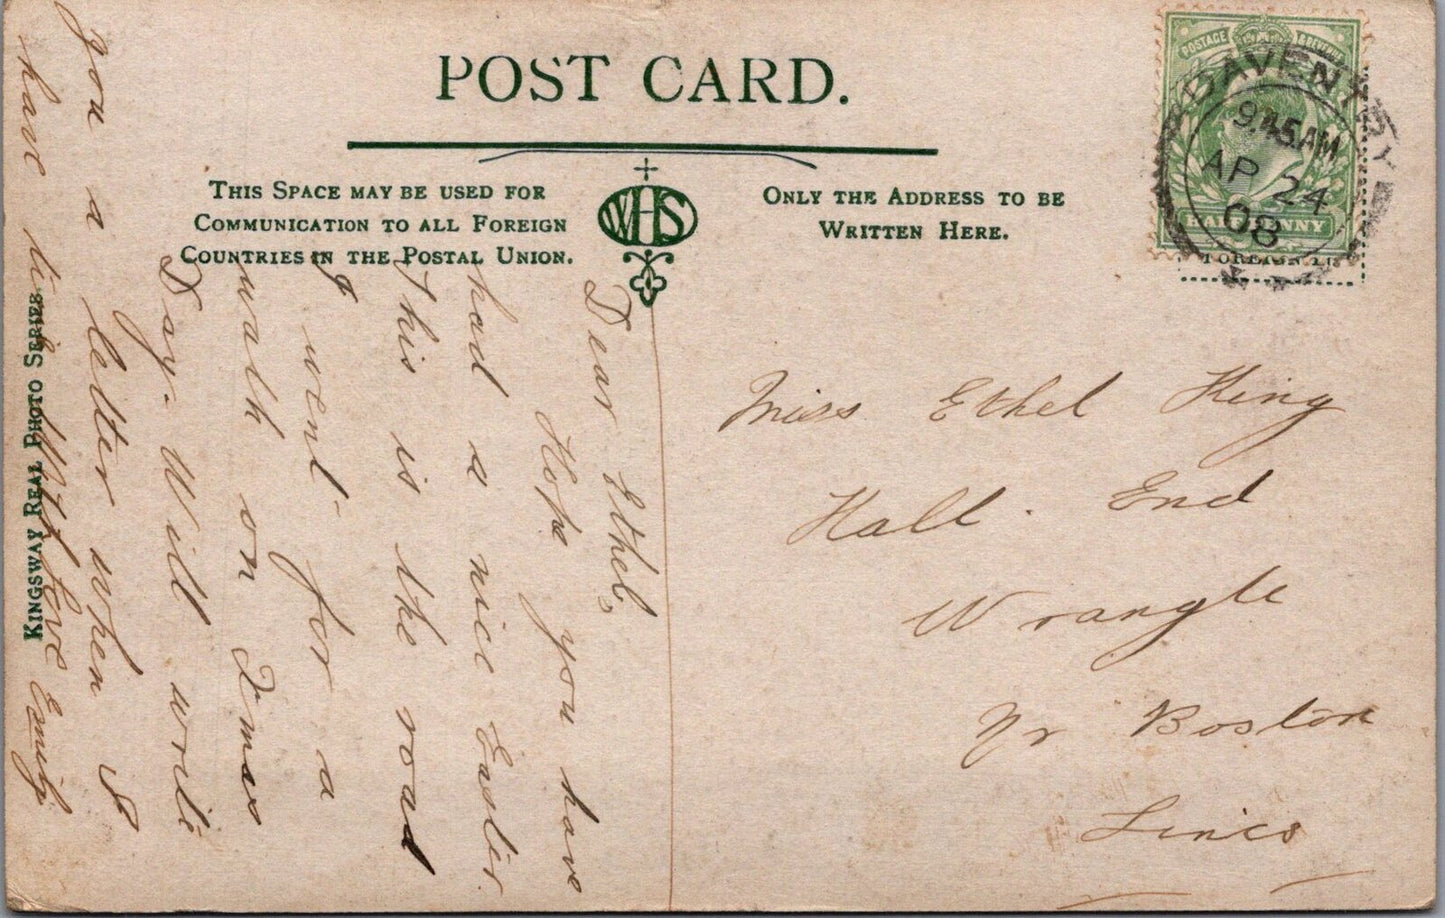 POST CARD.
THIS SPACE MAY BE USED FOR
COMMUNICATION TO ALL FOREIGN
COUNTRIES IN THE POSTAL UNION.
WHS
ONLY THE ADDRESS TO BE
WRITTEN HERE.
POSTAGE & REVENUE
HALFPENNY
DAVENTRY
9.45AM
AP 24
08
Miss Ethel King
Hall End
Wrangle
Nr Boston
Lincs
Dear Ethel,
Hope you have
had a nice Easter.
this is the road
I went for a
walk on Xmas
Day. Will write
you a letter when I
have time With Love Emily
KINGSWAY REAL PHOTO SERIES.